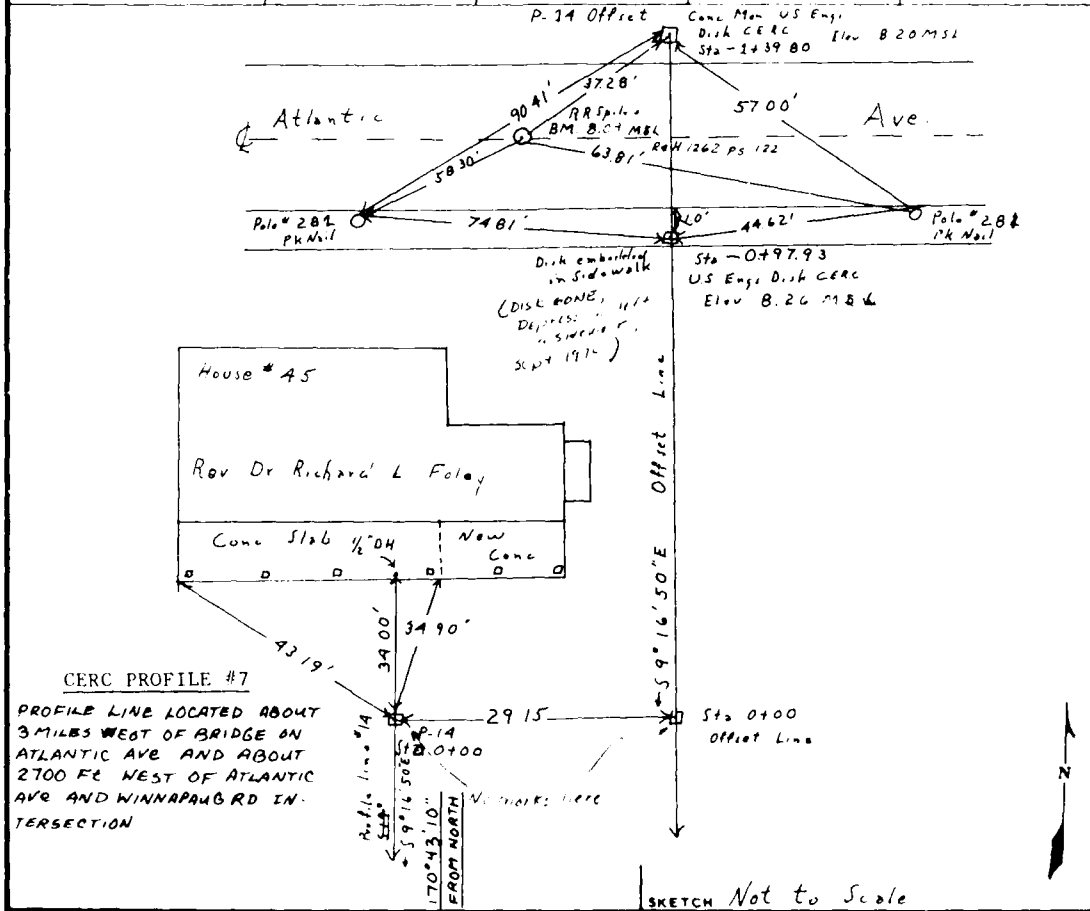 P-14 Offset
Conc Mon US Engr
Disk CERC Elev 8.20 MSL
Sta -1+39.80
90.41'
37.28'
57.00'
Atlantic
Ave.
RR Spike
BM. 8.04 MSL
58.30'
63.81'
R&H 1262 PS 122
Pole # 282
PK Nail
74.81'
1.0'
44.62'
Pole # 281
PK Nail
Disk embedded
in Sidewalk
Sta -0+97.93
U.S Engr Disk CERC
Elev 8.26 MSL
(DISK GONE,
Sept
House # 45
Rev Dr Richard L Foley
Offset Line
Conc Slab 1/2" DH
New
Conc
S 9° 16' 50" E
43.19'
34.00'
34.90'
CERC PROFILE #7
PROFILE LINE LOCATED ABOUT
3 MILES WEST OF BRIDGE ON
ATLANTIC AVE AND ABOUT
2700 Ft WEST OF ATLANTIC
AVE AND WINNAPAUG RD IN-
TERSECTION
P-14
Sta. 0+00
29.15
Sta 0+00
Offset Line
No marks here
Profile Line #14
S 9° 16' 50" E
170° 43' 10"
FROM NORTH
N
SKETCH Not to Scale